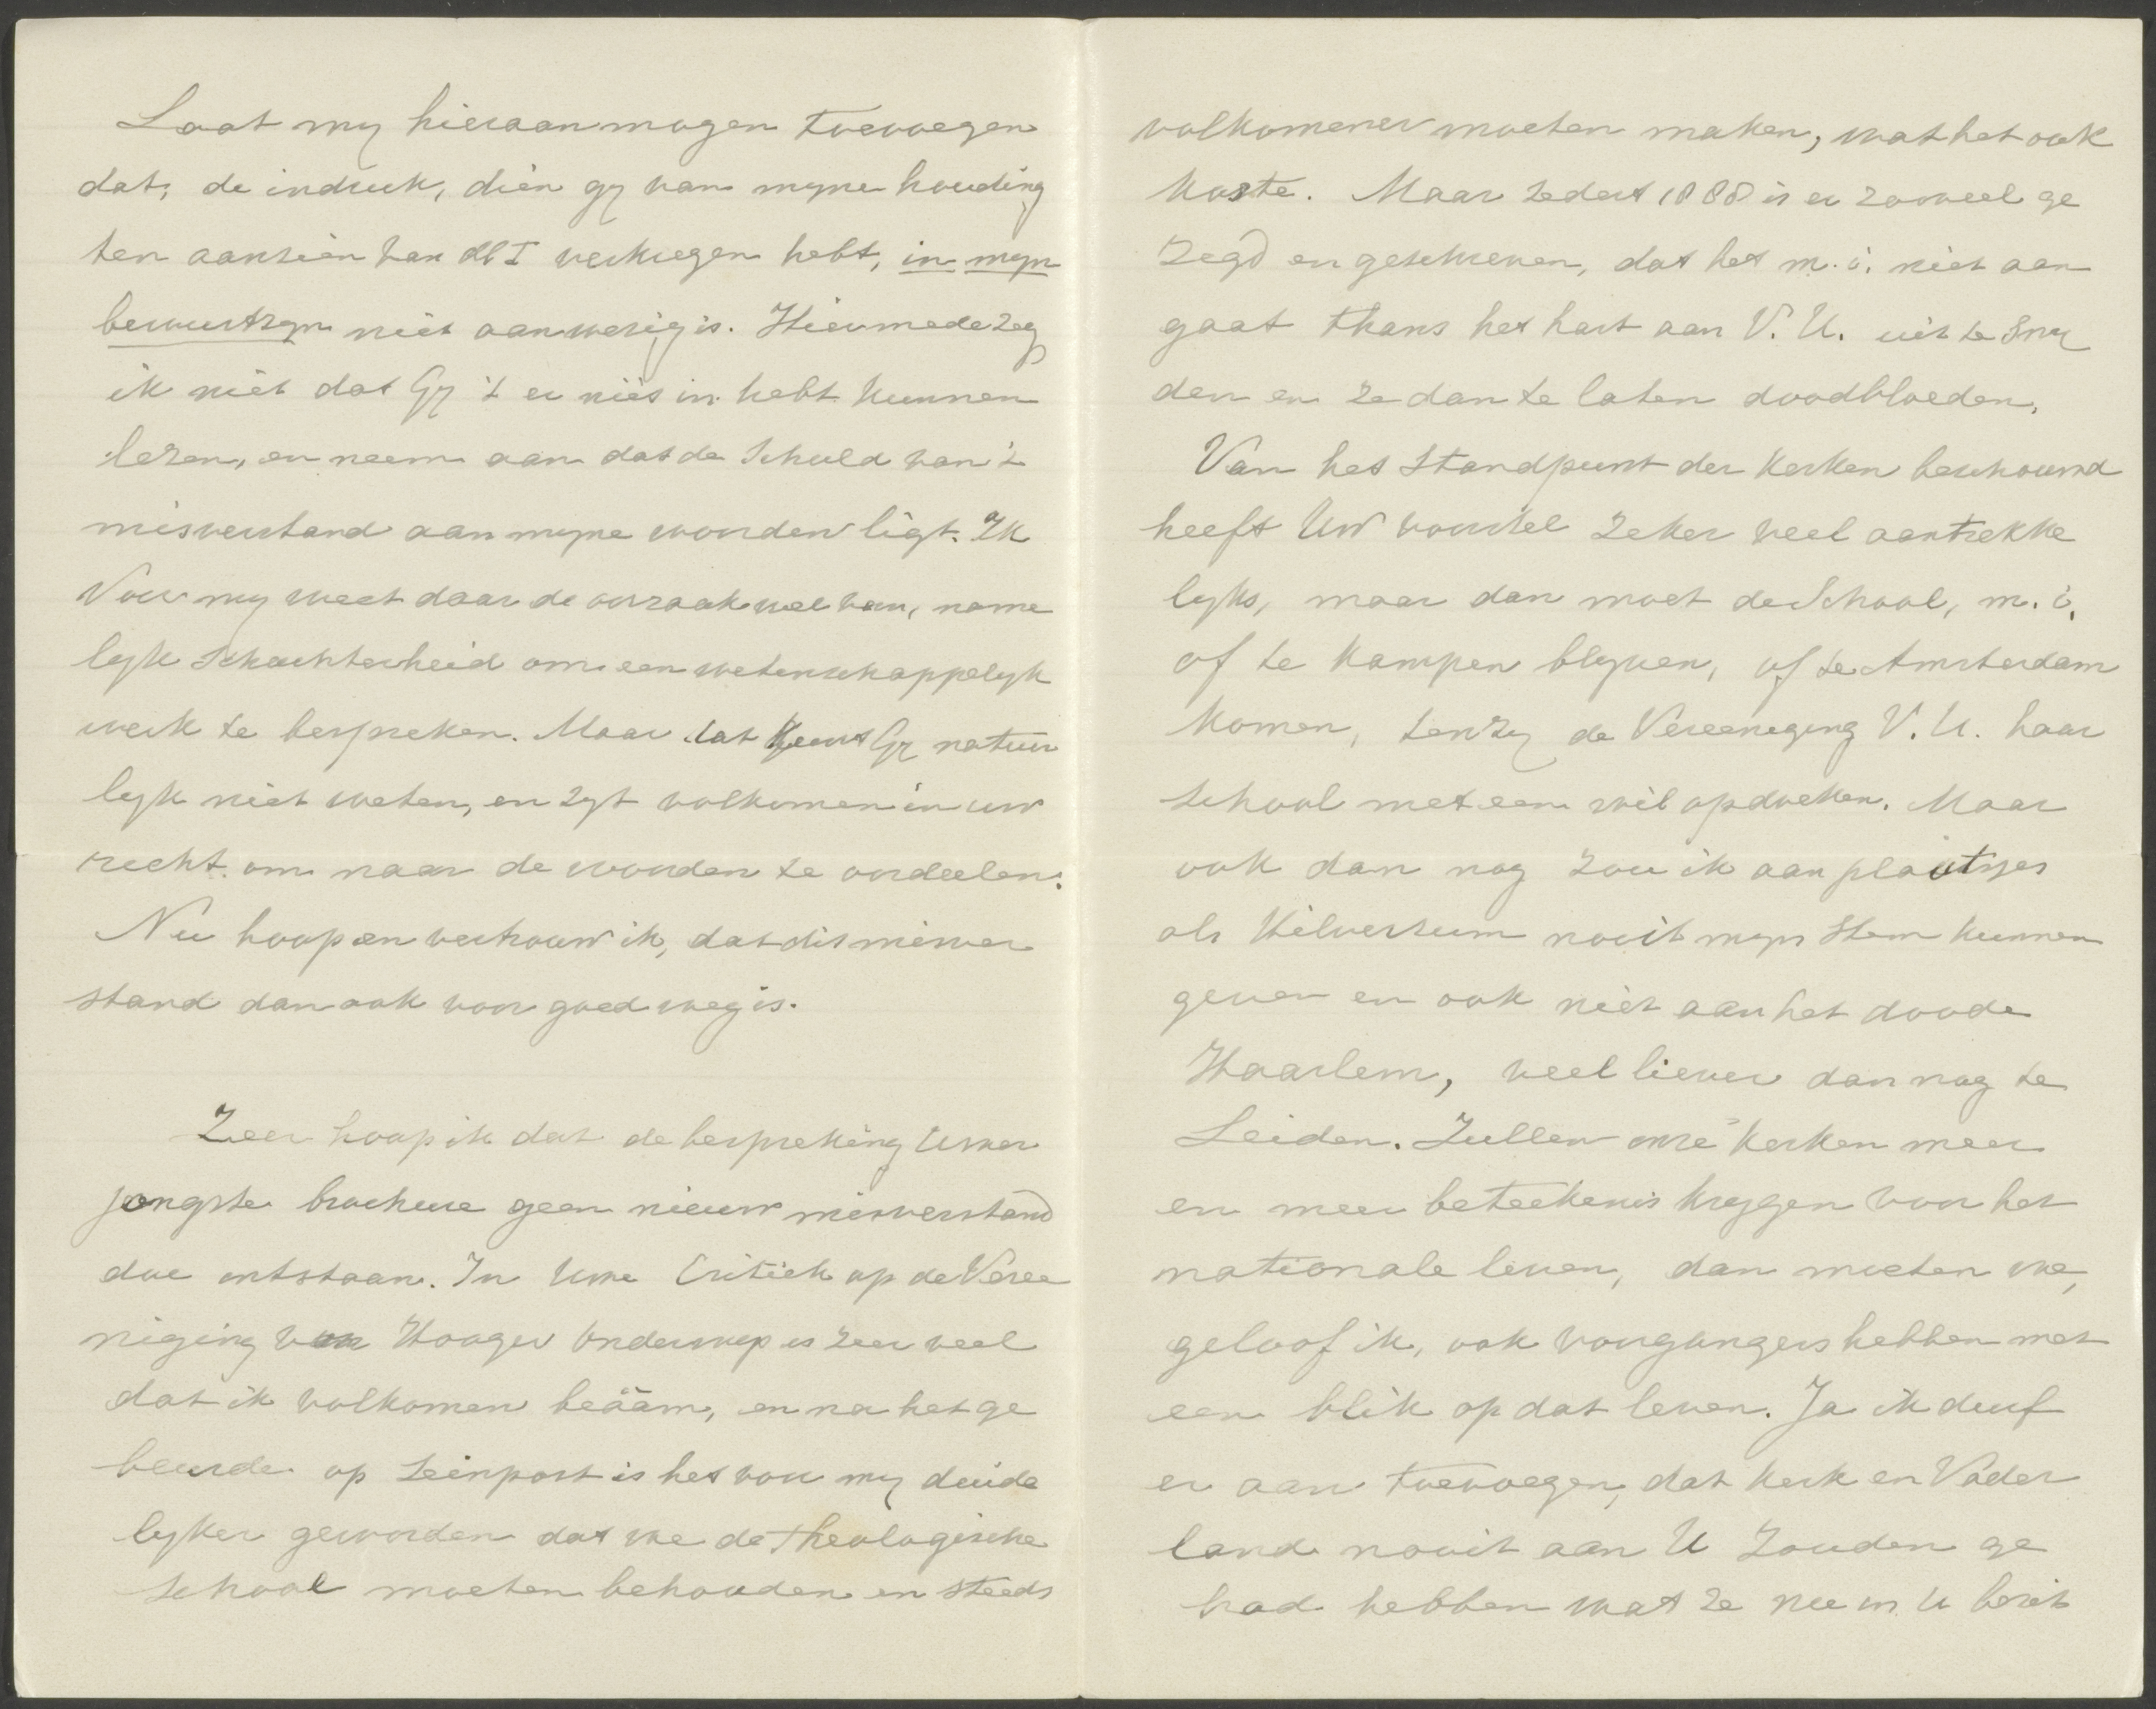 Laat my hieraan mogen toevoegen
dat, de indruk, dien gy van myne houding
ten aanzien van dl I verkregen hebt, in myn
bewustzyn niet aanwezig is. Hiermede zeg
ik niet dat Gy 't er niet in hebt kunnen
lezen, en neem aan dat de schuld van 't
misverstand aan myne woorden ligt. Ik
voor my weet daar de oorzaak wel van, name
lyk schuchterheid om een wetenschappelyk
werk te bespreken. Maar dat kunt Gy natuur
lyk niet weten, en zyt volkomen in uw
recht om naar de woorden te oordeelen.
Nu hoop en vertrouw ik, dat dit misver
stand dan ook voor goed weg is.
Zeer hoop ik dat de bespreking Uwer
jongste brochure geen nieuw misverstand
doe ontstaan. In Uwe Critiek op de Veree
niging van Hooger Onderwys is zeer veel
dat ik volkomen beääm, en na het ge
beurde op Seinpost is het voor my duide
lyker geworden dat we de theologische
School moeten behouden en steeds
volkomener moeten maken, wat het ook
koste. Maar zedert 1888 is er zooveel ge
zegd en geschreven, dat het m. i. niet aan
gaat thans het hart aan V. U. uit te sny
den en ze dan te laten doodbloeden.
Van het Standpunt der Kerken beschouwd
heeft Uw voorstel zeker veel aantrekke
lyks, maar dan moet de School, m. i.
of te Kampen blyven, of te Amsterdam
komen, tenzy de Vereeneging V. U. haar
school met een wil opdoeken. Maar
ook dan nog zou ik aan plaatsjes
als Hilversum nooit myn stem kunnen
geven en ook niet aan het doode
Haarlem, veel liever dan nog te
Leiden. Zullen onze Kerken meer
en meer beteekenis krygen voor het
nationale leven, dan moeten we,
geloof ik, ook voorgangers hebben met
een blik op dat leven. Ja ik durf
er aan toevoegen, dat Kerk en Vader
land nooit aan U zouden ge
had hebben wat ze nu in U bezit